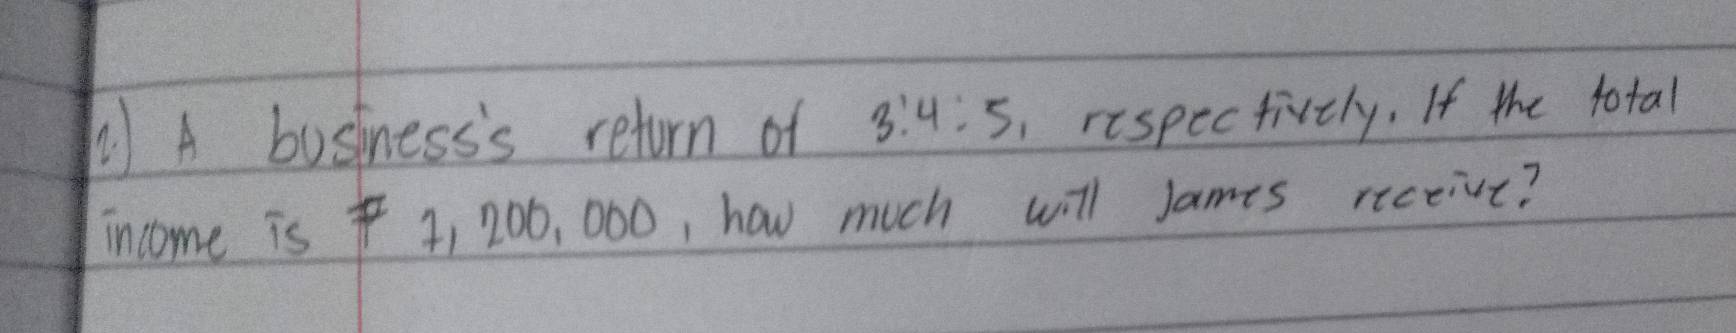 2.) A business's return of 3:4:5, respectively. If the total
income is ₱ 1,200,000, how much will James receive?